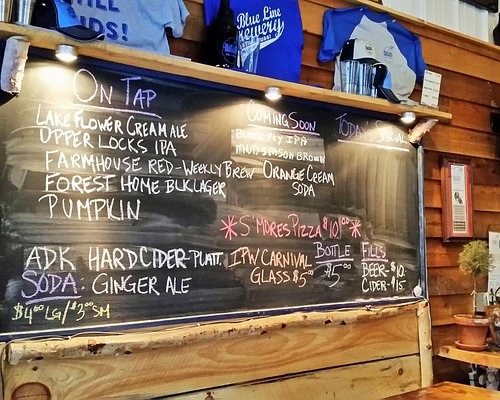 HILL
KIDS!
Blue Line
Brewery
ON TAP
LAKE FLOWER CREAM ALE
UPPER LOCKS IPA
FARMHOUSE RED-WEEKLY BREW
FOREST HOME BLK LAGER
PUMPKIN
ADK HARD CIDER-PLATT.
SODA: GINGER ALE
$4.00 LG/$3.00 SM
COMING SOON
BLACK FLY IPA
MUD SEASON BROWN
ORANGE CREAM
SODA
TODAY'S SPECIAL
*S'MORES PIZZA $10.00*
IPW CARNIVAL
GLASS $5.00
BOTTLE
$5.00
FILLS
BEER-$10
CIDER-$15